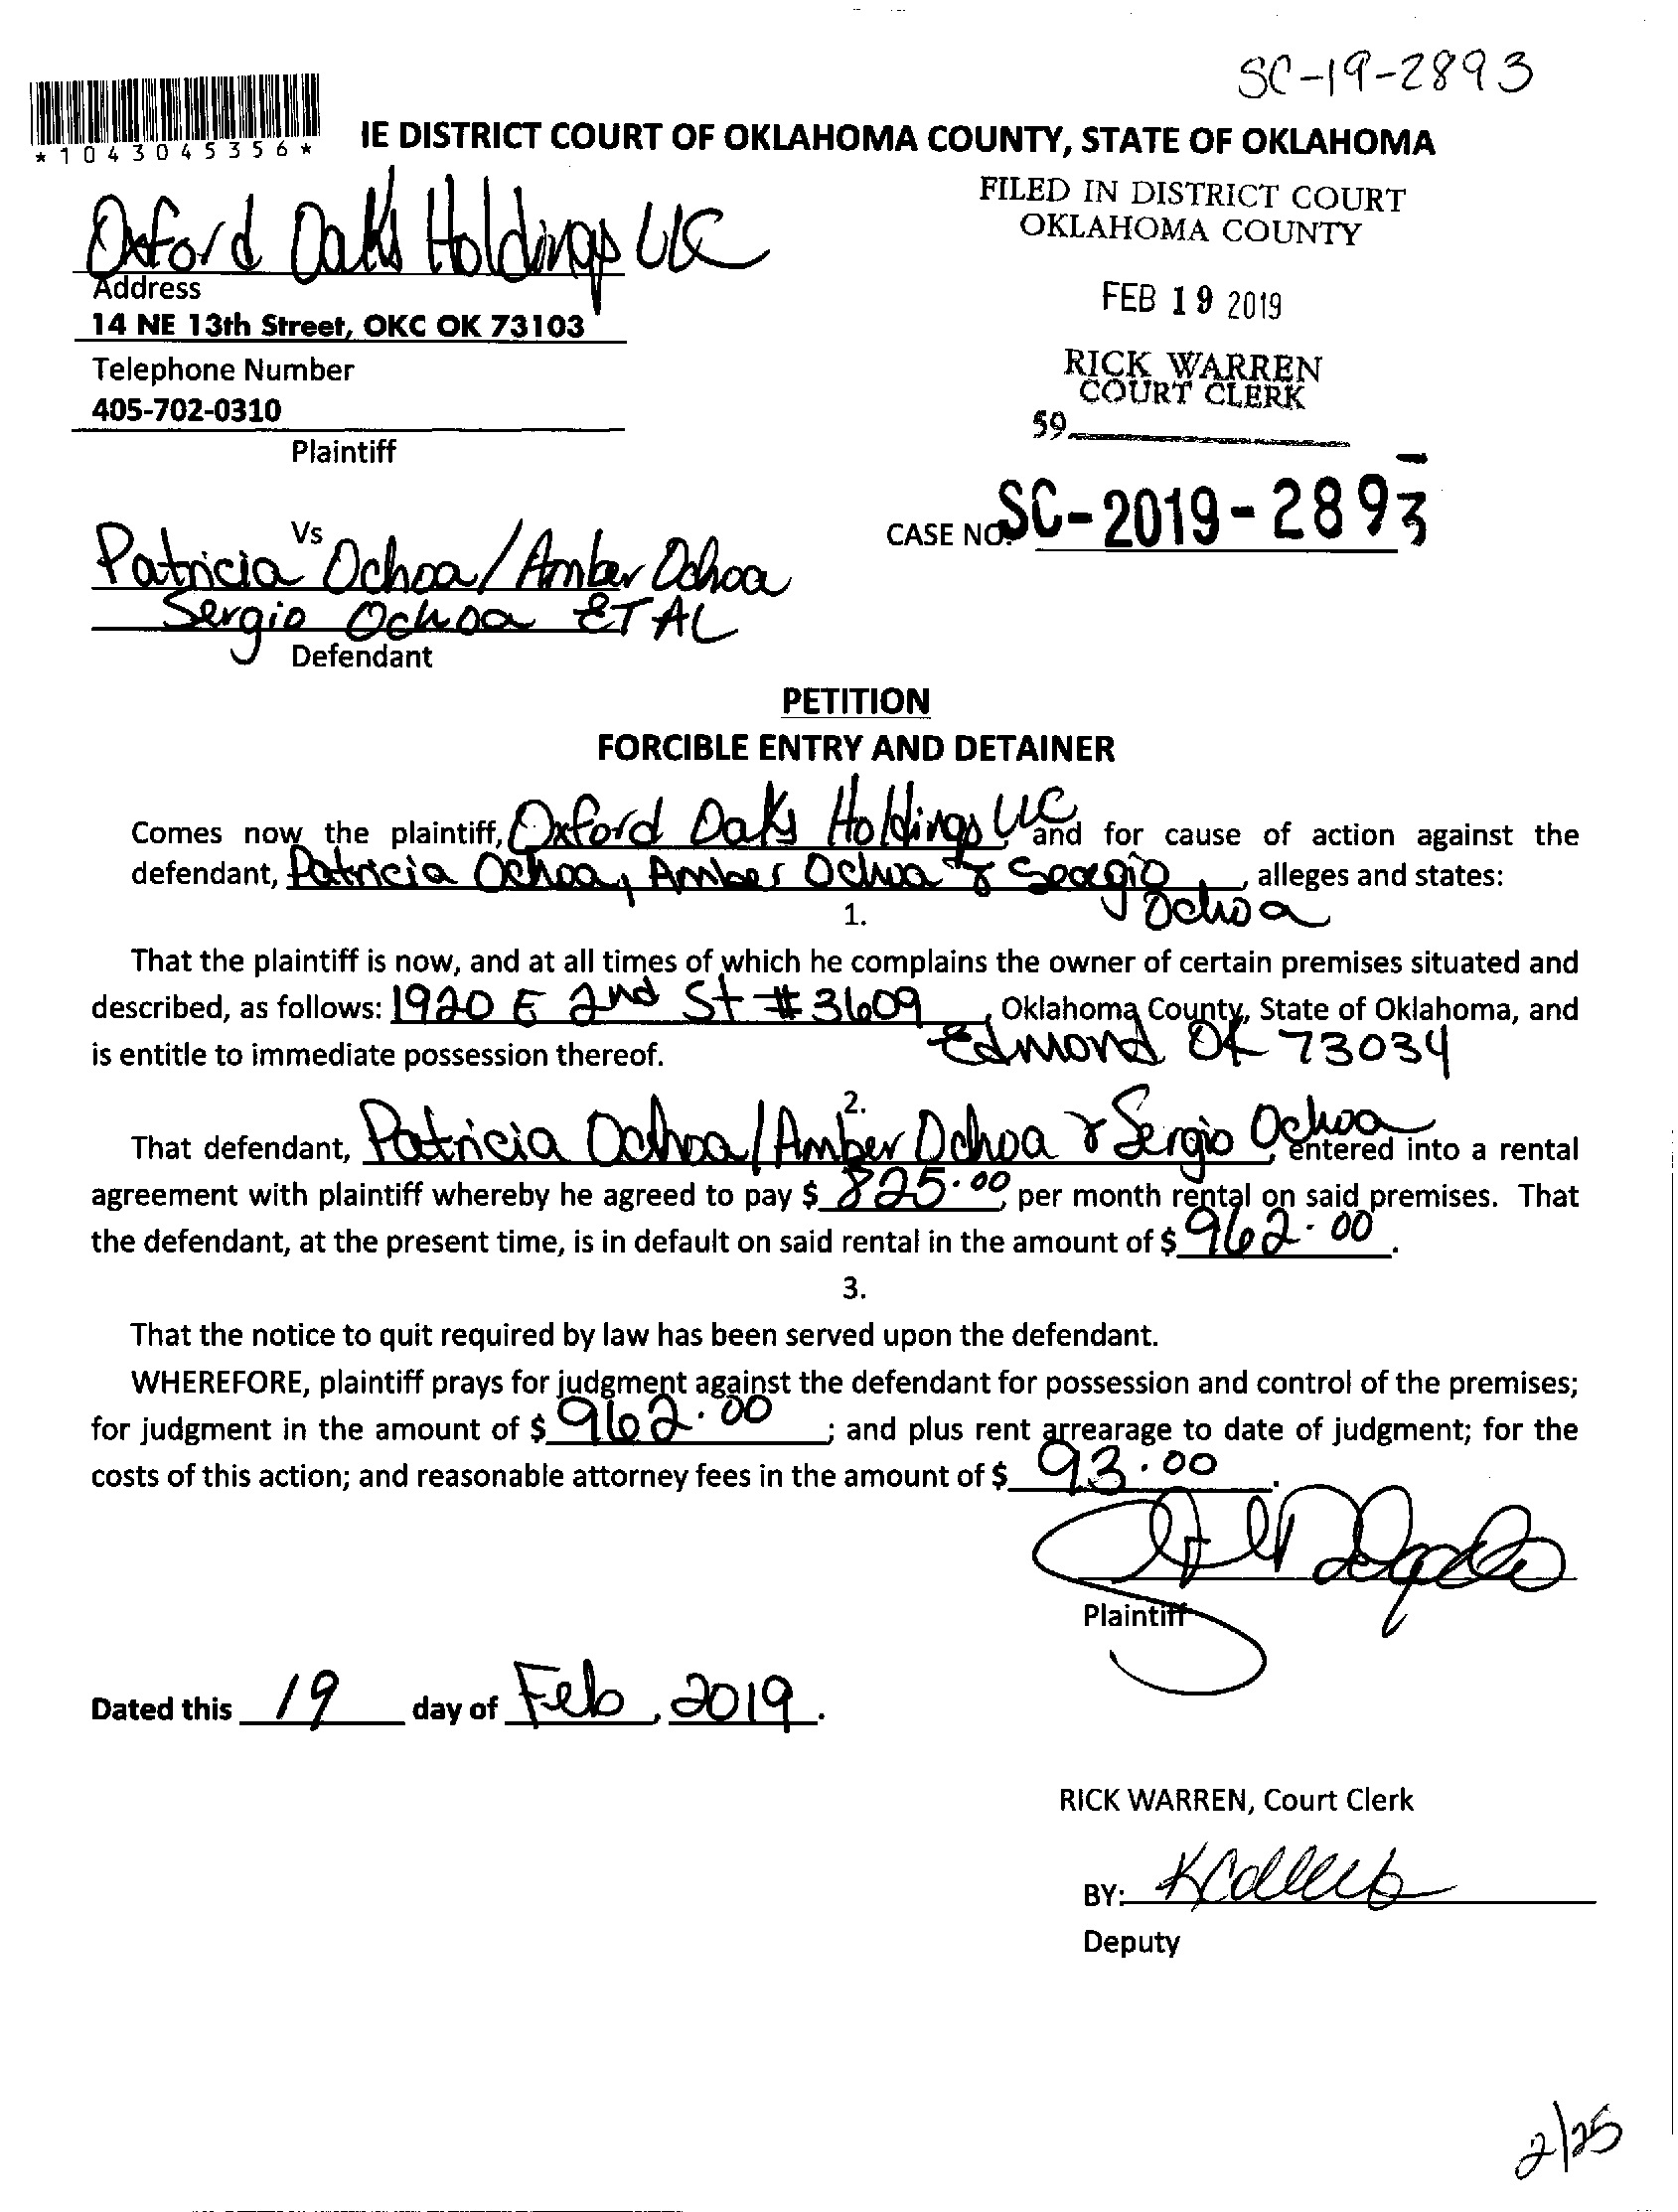 SC-19-2893
*1043045356*
IE DISTRICT COURT OF OKLAHOMA COUNTY, STATE OF OKLAHOMA
FILED IN DISTRICT COURT
OKLAHOMA COUNTY
Oxford Oaks Holdings LLC
Address
14 NE 13th Street, OKC OK 73103
FEB 19 2019
Telephone Number
405-702-0310
RICK WARREN
COURT CLERK
59
Plaintiff
CASE NO. SC-2019-2893
Vs
Patricia Ochoa/Amber Ochoa
Sergio Ochoa ET AL
Defendant
PETITION
FORCIBLE ENTRY AND DETAINER
Comes now the plaintiff, Oxford Oaks Holdings LLC, and for cause of action against the
defendant, Patricia Ochoa, Amber Ochoa & Sergio Ochoa, alleges and states:
1.
That the plaintiff is now, and at all times of which he complains the owner of certain premises situated and
described, as follows: 1920 E 2nd St #3609, Oklahoma County, State of Oklahoma, and
is entitle to immediate possession thereof. Edmond OK 73034
2.
That defendant, Patricia Ochoa/Amber Ochoa & Sergio Ochoa, entered into a rental
agreement with plaintiff whereby he agreed to pay $ 825.00, per month rental on said premises. That
the defendant, at the present time, is in default on said rental in the amount of $ 962.00.
3.
That the notice to quit required by law has been served upon the defendant.
WHEREFORE, plaintiff prays for judgment against the defendant for possession and control of the premises;
for judgment in the amount of $ 962.00; and plus rent arrearage to date of judgment; for the
costs of this action; and reasonable attorney fees in the amount of $ 93.00.
Plaintiff
Dated this 19 day of Feb, 2019.
RICK WARREN, Court Clerk
BY:
Deputy
2/25